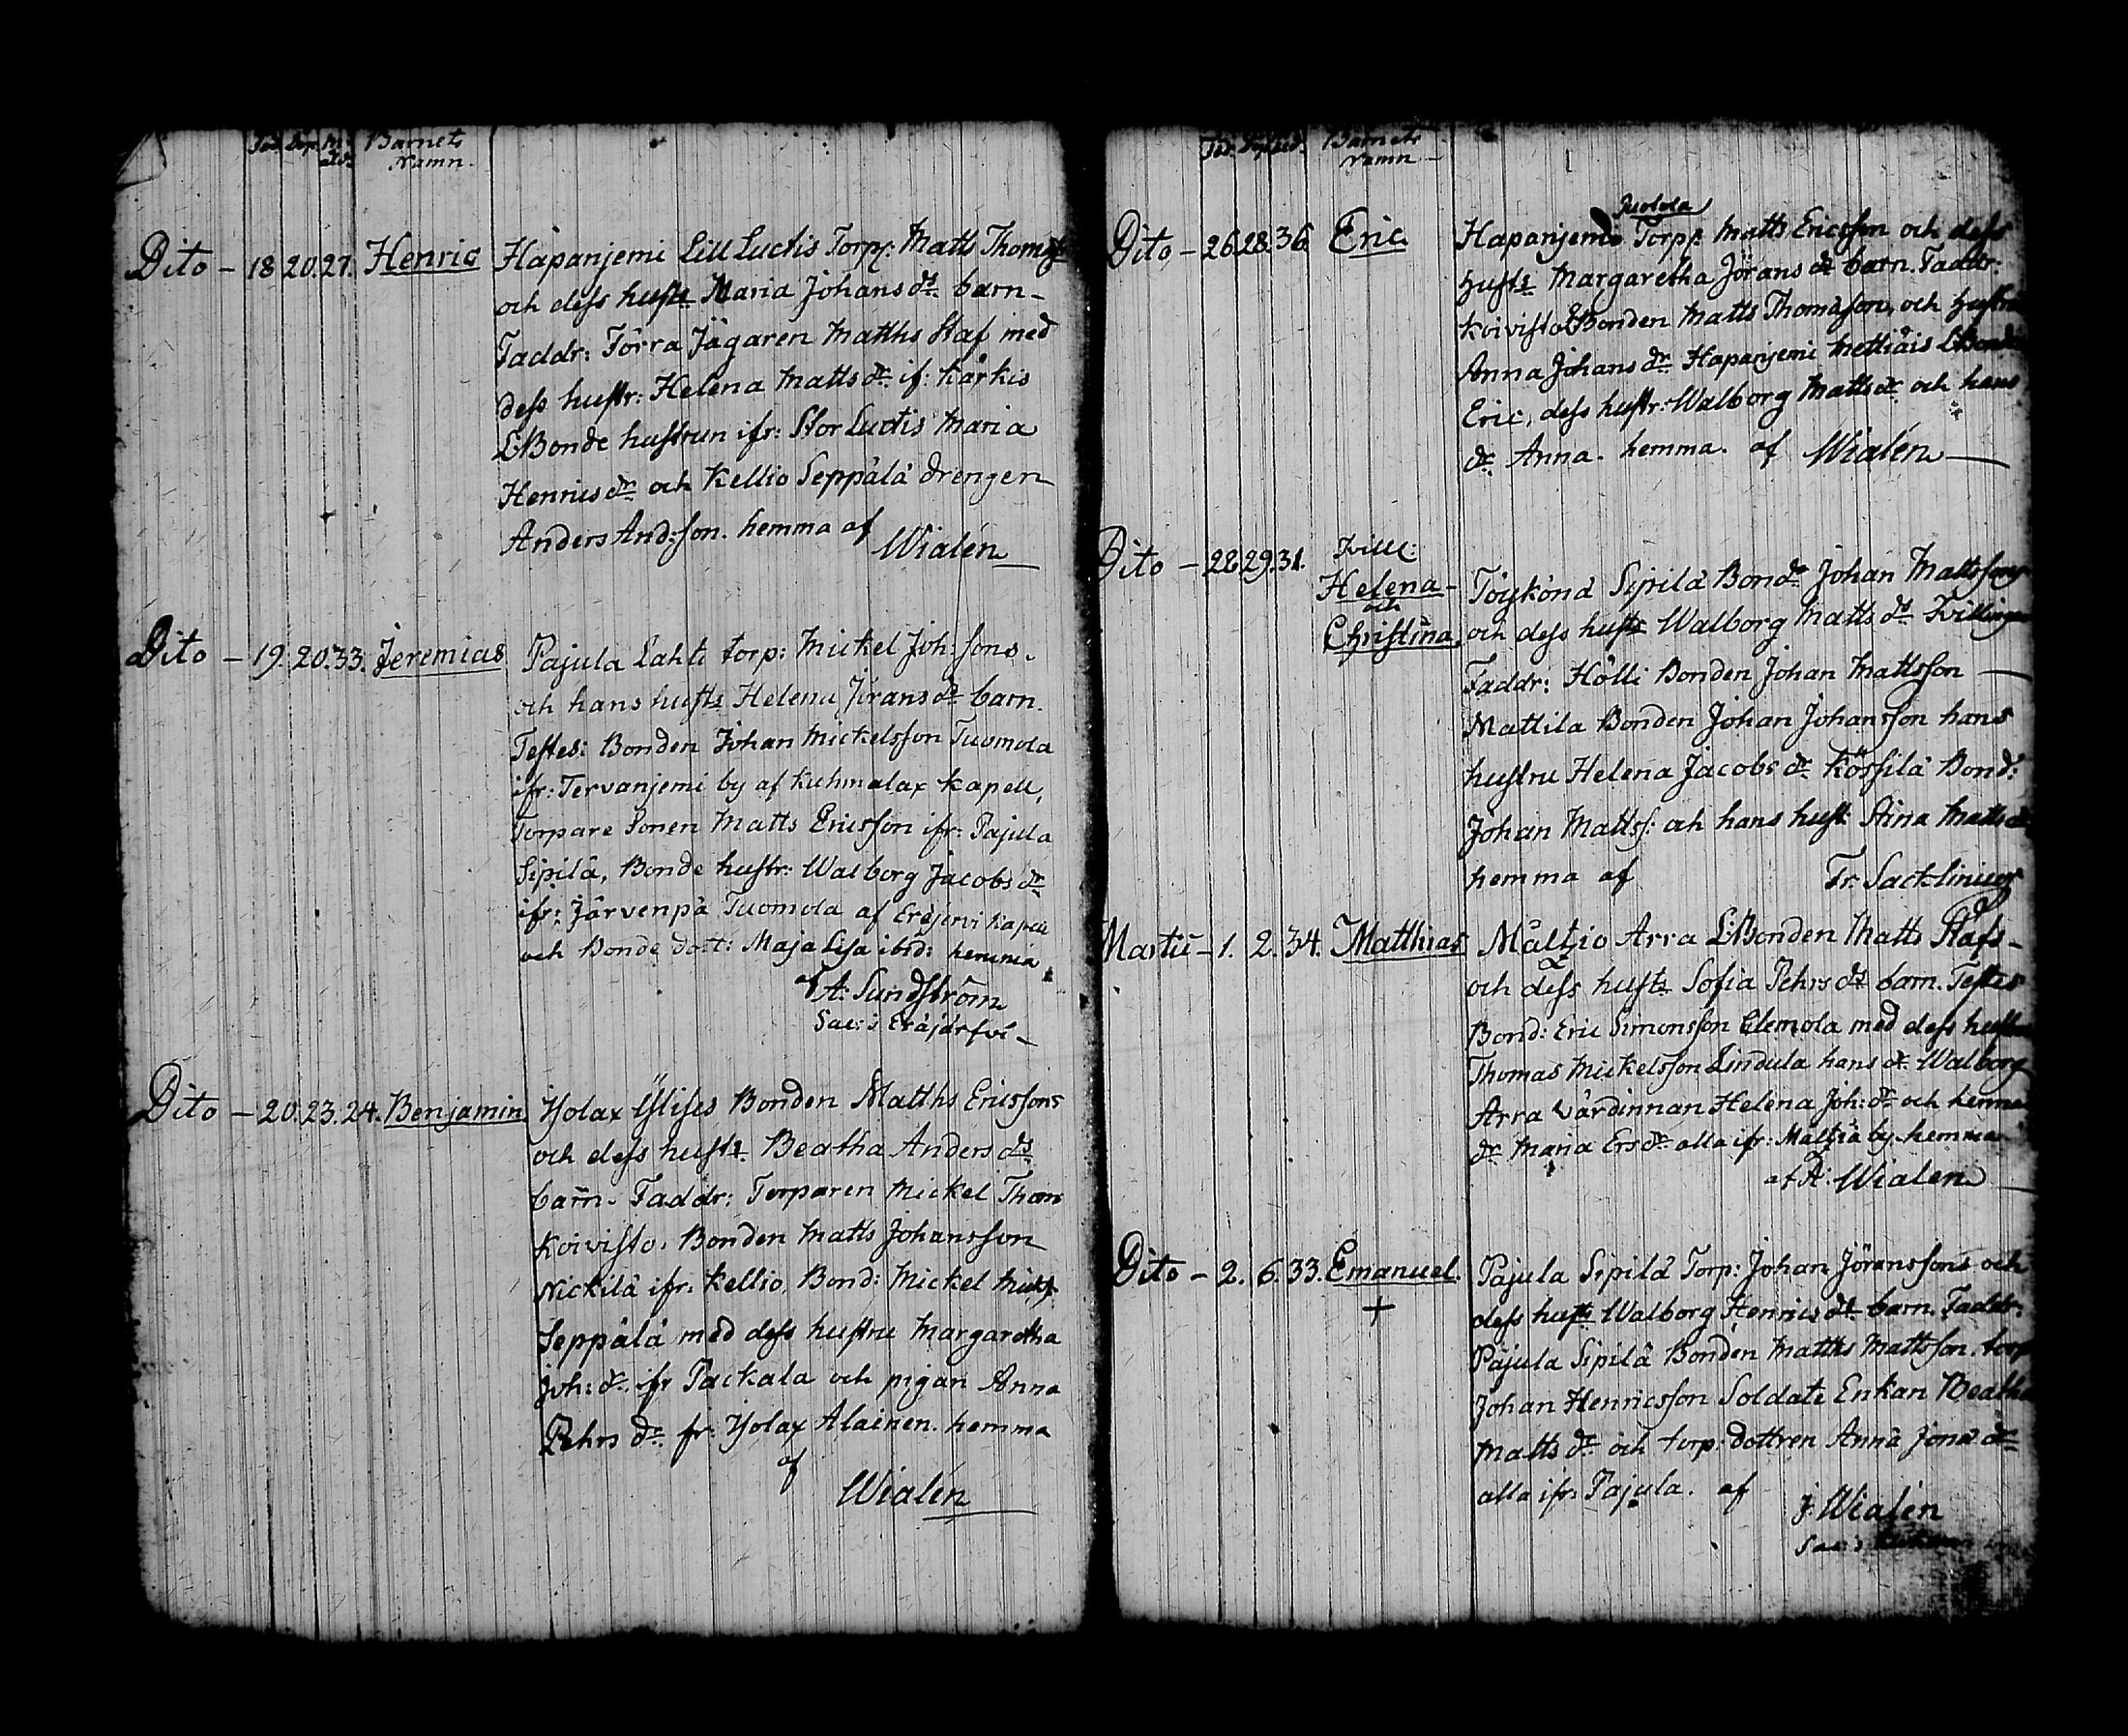 Barnets
Namn.
Dito – 18 20. 27. Henric Hapanjemi Lill Luctis Torp: Matts Thom
och dess hust: Maria Johans dr. barn –
Faddr: Förra Jägaren Matths Staf med
dess hustr: Helena Matts dr. if: Kärkis
LBonde hustrun ifr: Stor Luctis Maria
Henrics dr. och Kellio Seppälä drengen
Anders And:son. hemma af
Wialén
Dito – 19. 20. 33. Jeremias Pajula Lahti torp: Mickel Joh:sons.
och hans hust: Helena Jörans dr barn.
Testes: Bonden Johan Mickelsson Tuomola
ifr: Tervanjemi by af Kuhmalax Kapell,
Torpare Sonen Matts Ericsson ifr: Pajula
Sipilä, Bonde hustr: Walborg Jacobs dr
ifr: Järvenpä Tuomola af Eräjervi Kapell
och Bonde dott: Maja Lisa ibid: hemma
af A: Sundström
Sac: i Eräjärfvi –
Dito – 20. 23. 24. Benjamin Holax Bonden Matths Ericssons
och dess hust: Beatha Anders dr
barn. Faddr: Torparen Mickel Thoms
Koivisto, Bonden Matts Johansson
Nickilä ifr: Kellio, Bond: Mickel Micks:
Seppälä med dess hustru Margaretha
Joh: dr. ifr Packala och pigan Anna
Pehrs dr. fr: Holax Alainen. hemma
af
Wialén
Barnets
Namn –
Dito – 26 28. 36. Eric Hapanjemi Torpp. Matts Ericsson och dess
hust: Margaretha Jörans dr barn. Faddr:
Koivisto LBonden Matts Thomasson, och hustru
Anna Johans dr Hapanjemi Mettiäis LBonden
Eric, dess hustr: Walborg Matts dr. och hans
dr. Anna. hemma. af Wialén
Tvill:
Dito – 28 29. 31. Helena –
och
Christina. Töykönä Sipilä Bond: Johan Mattssons
och dess hust: Walborg Matts dr Tvillingar
Faddr: Hölli Bonden Johan Mattsson
Mattila Bonden Johan Johansson hans
hustru Helena Jacobs dr Kössilä Bond:
Johan Matts: och hans hust: Stina Matts dr
hemma af Fr. Sacklinius
Martii – 1. 2. 34. Matthias Mältzio Arra LBonden Matts Stafs –
och dess hust: Sofia Pehrs dr barn. Testes
Bond: Eric Simonsson Clemola med dess hustru
Thomas Mickelsson Lindula hans dr. Walborg
Arra värdinnan Helena Joh: dr och henne
dr Maria Ers dr alla ifr: Mältziä by. hemma
af A: Wialén
Dito – 2. 6. 33. Emanuel. Pajula Sipilä Torp: Johan Jöranssons och
dess hust: Walborg Henrics dr barn. Faddr:
Pajula Sipilä Bonden Matths Mattsson. torp
Johan Henricsson Soldats Enkan Beatha
Matts dr och torp: dottren Anna Jona dr
alla ifr: Pajula. af
J. Wialén
Sac: i